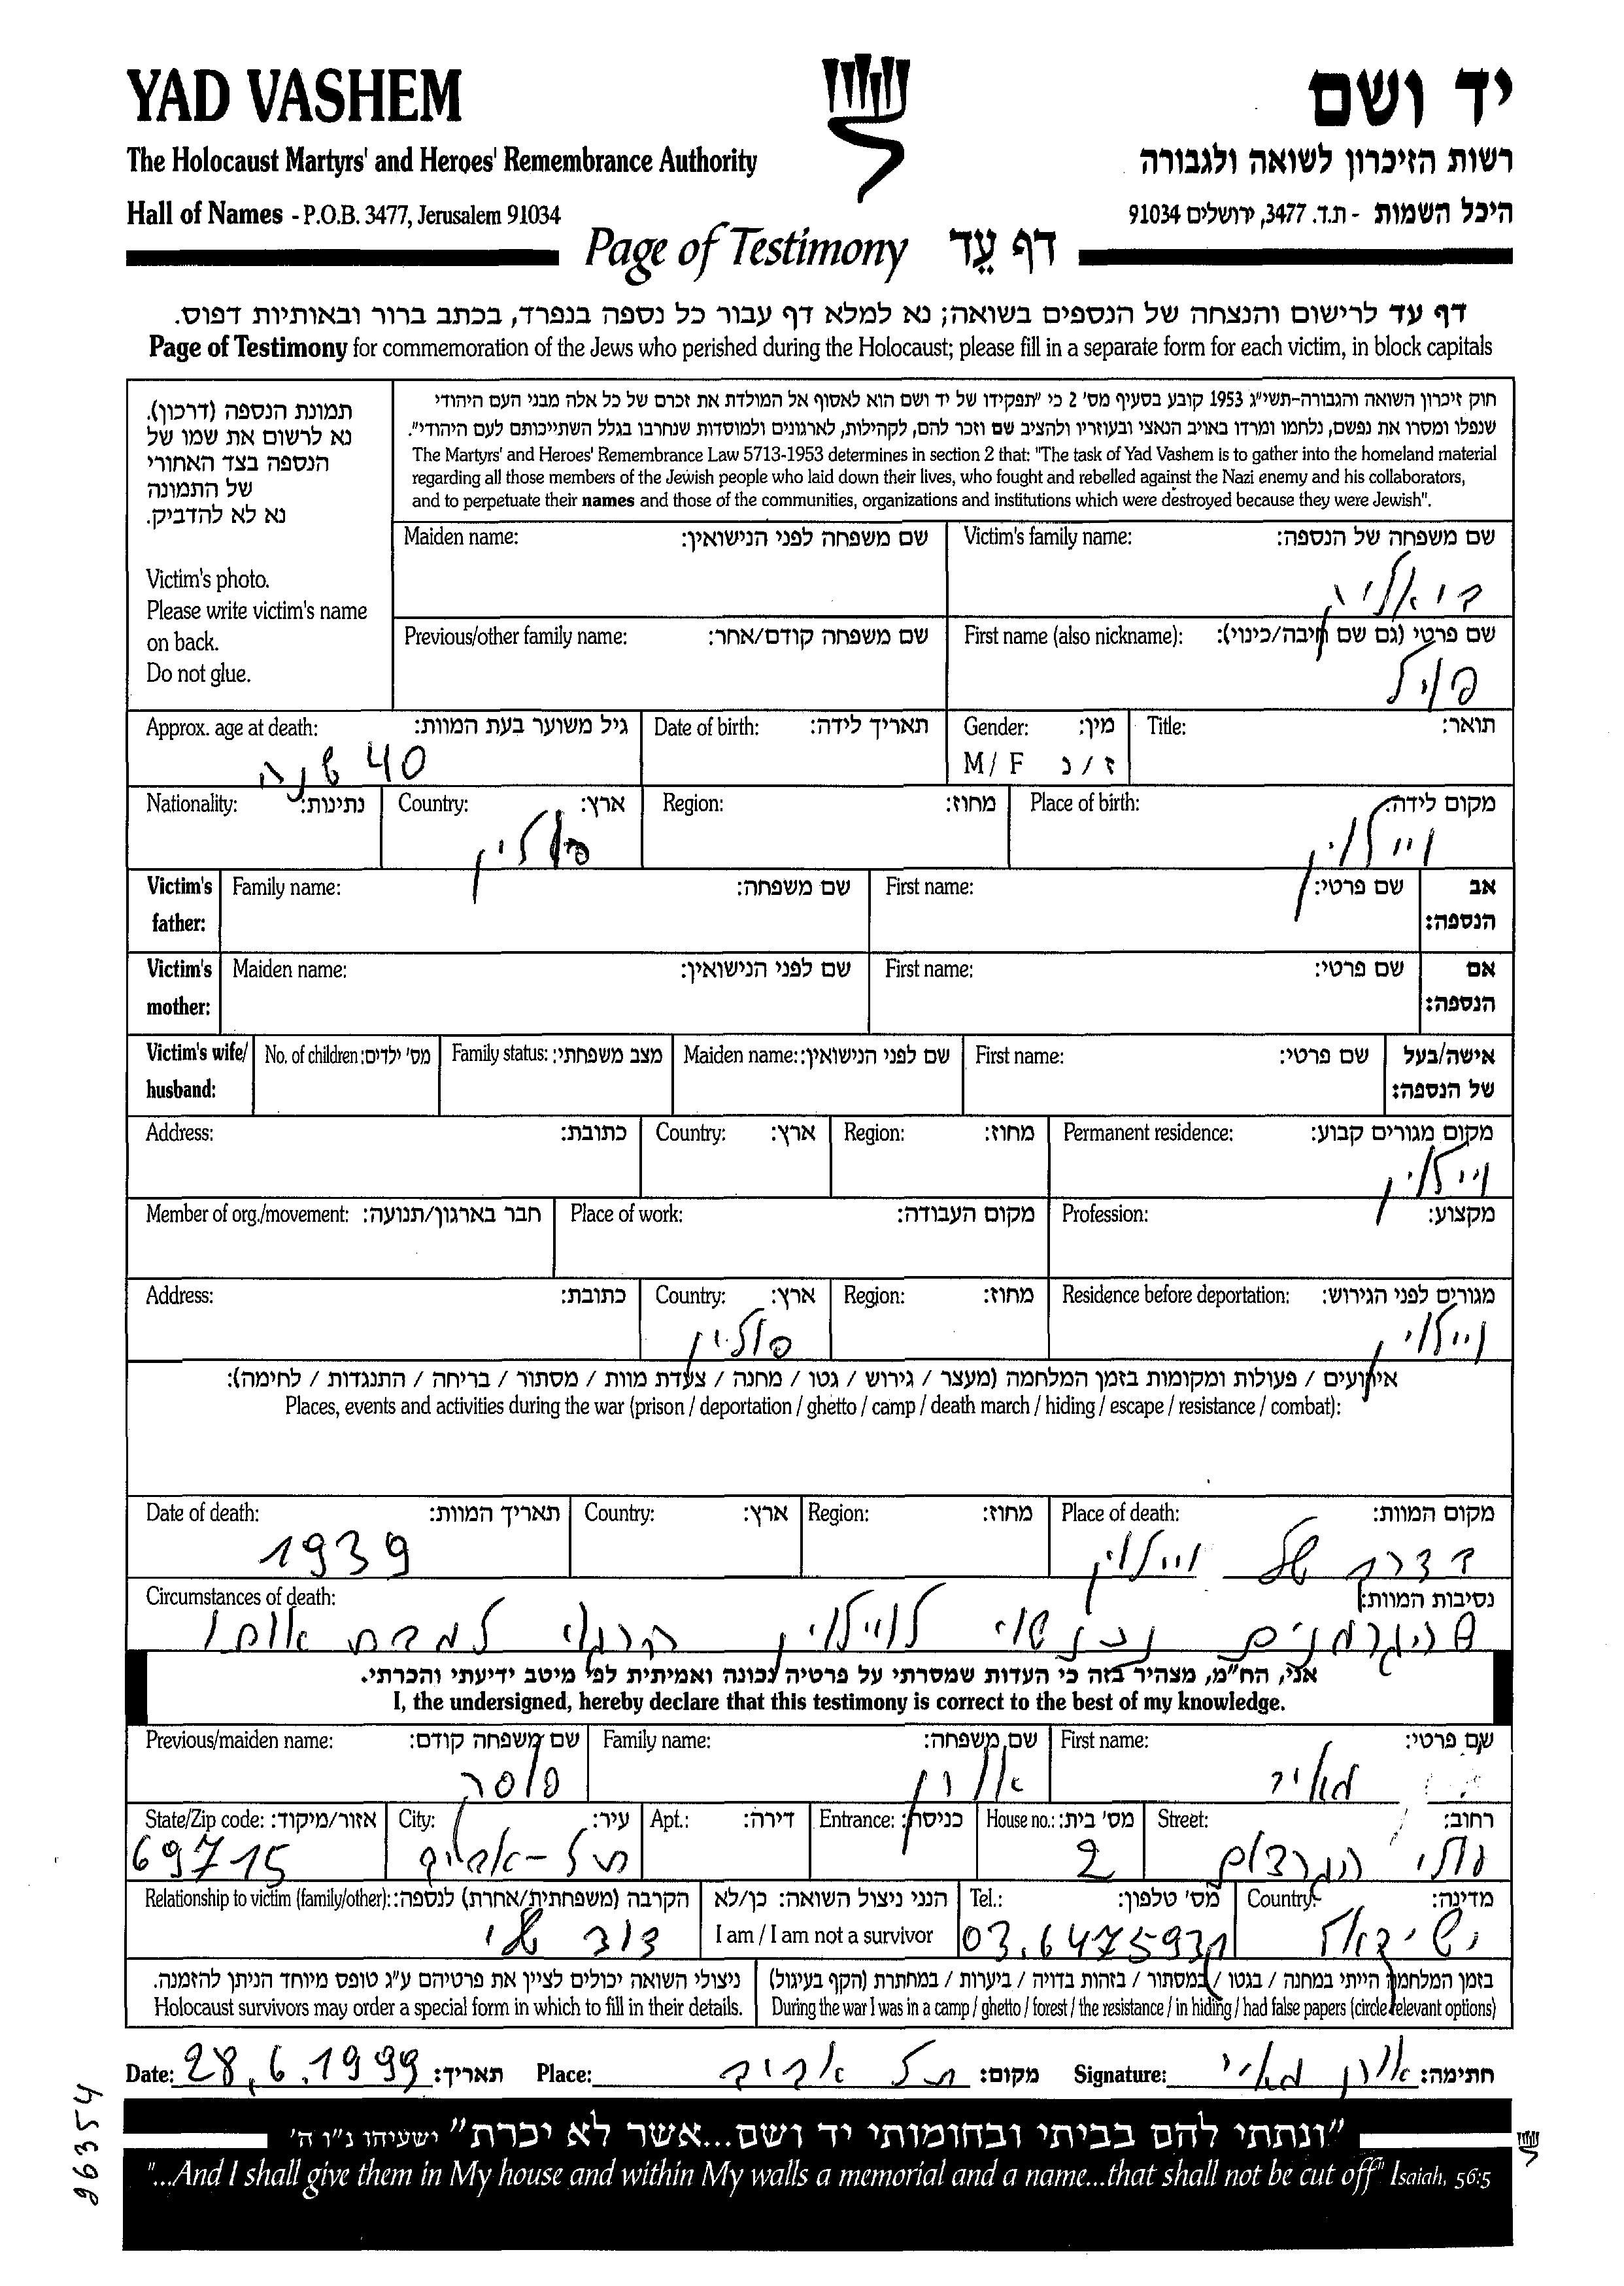 YAD VASHEM
יד ושם
The Holocaust Martyrs' and Heroes' Remembrance Authority
רשות הזיכרון לשואה ולגבורה
Hall of Names - P.O.B. 3477, Jerusalem 91034
היכל השמות - ת.ד. 3477, ירושלים 91034
Page of Testimony דף עֵד
דף עד לרישום והנצחה של הנספים בשואה; נא למלא דף עבור כל נספה בנפרד, בכתב ברור ובאותיות דפוס.
Page of Testimony for commemoration of the Jews who perished during the Holocaust; please fill in a separate form for each victim, in block capitals
תמונת הנספה (דרכון).
נא לרשום את שמו של
הנספה בצד האחורי
של התמונה
נא לא להדביק.
Victim's photo.
Please write victim's name
on back.
Do not glue.
חוק זיכרון השואה והגבורה-תשי"ג 1953 קובע בסעיף מס' 2 כי "תפקידו של יד ושם הוא לאסוף אל המולדת את זכרם של כל אלה מבני העם היהודי
שנפלו ומסרו את נפשם, נלחמו ומרדו באויב הנאצי ובעוזריו ולהציב שם וזכר להם, לקהילות, לארגונים ולמוסדות שנחרבו בגלל השתייכותם לעם היהודי".
The Martyrs' and Heroes' Remembrance Law 5713-1953 determines in section 2 that: "The task of Yad Vashem is to gather into the homeland material
regarding all those members of the Jewish people who laid down their lives, who fought and rebelled against the Nazi enemy and his collaborators,
and to perpetuate their names and those of the communities, organizations and institutions which were destroyed because they were Jewish".
Maiden name: שם משפחה לפני הנישואין: Victim's family name: שם משפחה של הנספה:
Previous/other family name: שם משפחה קודם/אחר: First name (also nickname): שם פרטי (גם שם חיבה/כינוי):
Approx. age at death: גיל משוער בעת המוות: Date of birth: תאריך לידה: Gender: מין: Title: תואר:
40 שנה M / F ז / נ
Nationality: נתינות: Country: ארץ: Region: מחוז: Place of birth: מקום לידה:
פולין ויילון
Victim's father: Family name: שם משפחה: First name: שם פרטי: אב הנספה:
Victim's mother: Maiden name: שם לפני הנישואין: First name: שם פרטי: אם הנספה:
Victim's wife/ husband: No. of children: מס' ילדים: Family status: מצב משפחתי: Maiden name: שם לפני הנישואין: First name: שם פרטי: אישה/בעל של הנספה:
Address: כתובת: Country: ארץ: Region: מחוז: Permanent residence: מקום מגורים קבוע:
ויילון
Member of org./movement: חבר בארגון/תנועה: Place of work: מקום העבודה: Profession: מקצוע:
Address: כתובת: Country: ארץ: Region: מחוז: Residence before deportation: מגורים לפני הגירוש:
פולין ויילון
אירועים / פעולות ומקומות בזמן המלחמה (מעצר / גירוש / גטו / מחנה / צעדת מוות / מסתור / בריחה / התנגדות / לחימה):
Places, events and activities during the war (prison / deportation / ghetto / camp / death march / hiding / escape / resistance / combat):
Date of death: תאריך המוות: Country: ארץ: Region: מחוז: Place of death: מקום המוות:
1939 של ויילון
Circumstances of death: נסיבות המוות:
שהגרמנים נכנסו לויילון הרגו אותו
אני, הח"מ, מצהיר בזה כי העדות שמסרתי על פרטיה נכונה ואמיתית לפי מיטב ידיעתי והכרתי.
I, the undersigned, hereby declare that this testimony is correct to the best of my knowledge.
Previous/maiden name: שם משפחה קודם: Family name: שם משפחה: First name: שם פרטי:
אלון מאיר
State/Zip code: אזור/מיקוד: City: עיר: Apt.: דירה: Entrance: כניסה: House no.: מס' בית: Street: רחוב:
69715 תל-אביב 2 הגרדום
Relationship to victim (family/other): הקרבה (משפחתית/אחרת) לנספה: הנני ניצול השואה: כן/לא Tel.: מס' טלפון: Country: מדינה:
דוד שני I am / I am not a survivor 03.6475931 ישראל
ניצולי השואה יכולים לציין את פרטיהם ע"ג טופס מיוחד הניתן להזמנה. בזמן המלחמה הייתי במחנה / בגטו / במסתור / בזהות בדויה / ביערות / במחתרת (הקף בעיגול)
Holocaust survivors may order a special form in which to fill in their details. During the war I was in a camp / ghetto / forest / the resistance / in hiding / had false papers (circle relevant options)
Date: 28.6.1999 תאריך: Place: תל אביב מקום: Signature: אלון מאיר חתימה:
"ונתתי להם בביתי ובחומותי יד ושם...אשר לא יכרת" ישעיהו נ"ו ה'
"...And I shall give them in My house and within My walls a memorial and a name...that shall not be cut off" Isaiah, 56:5
96354